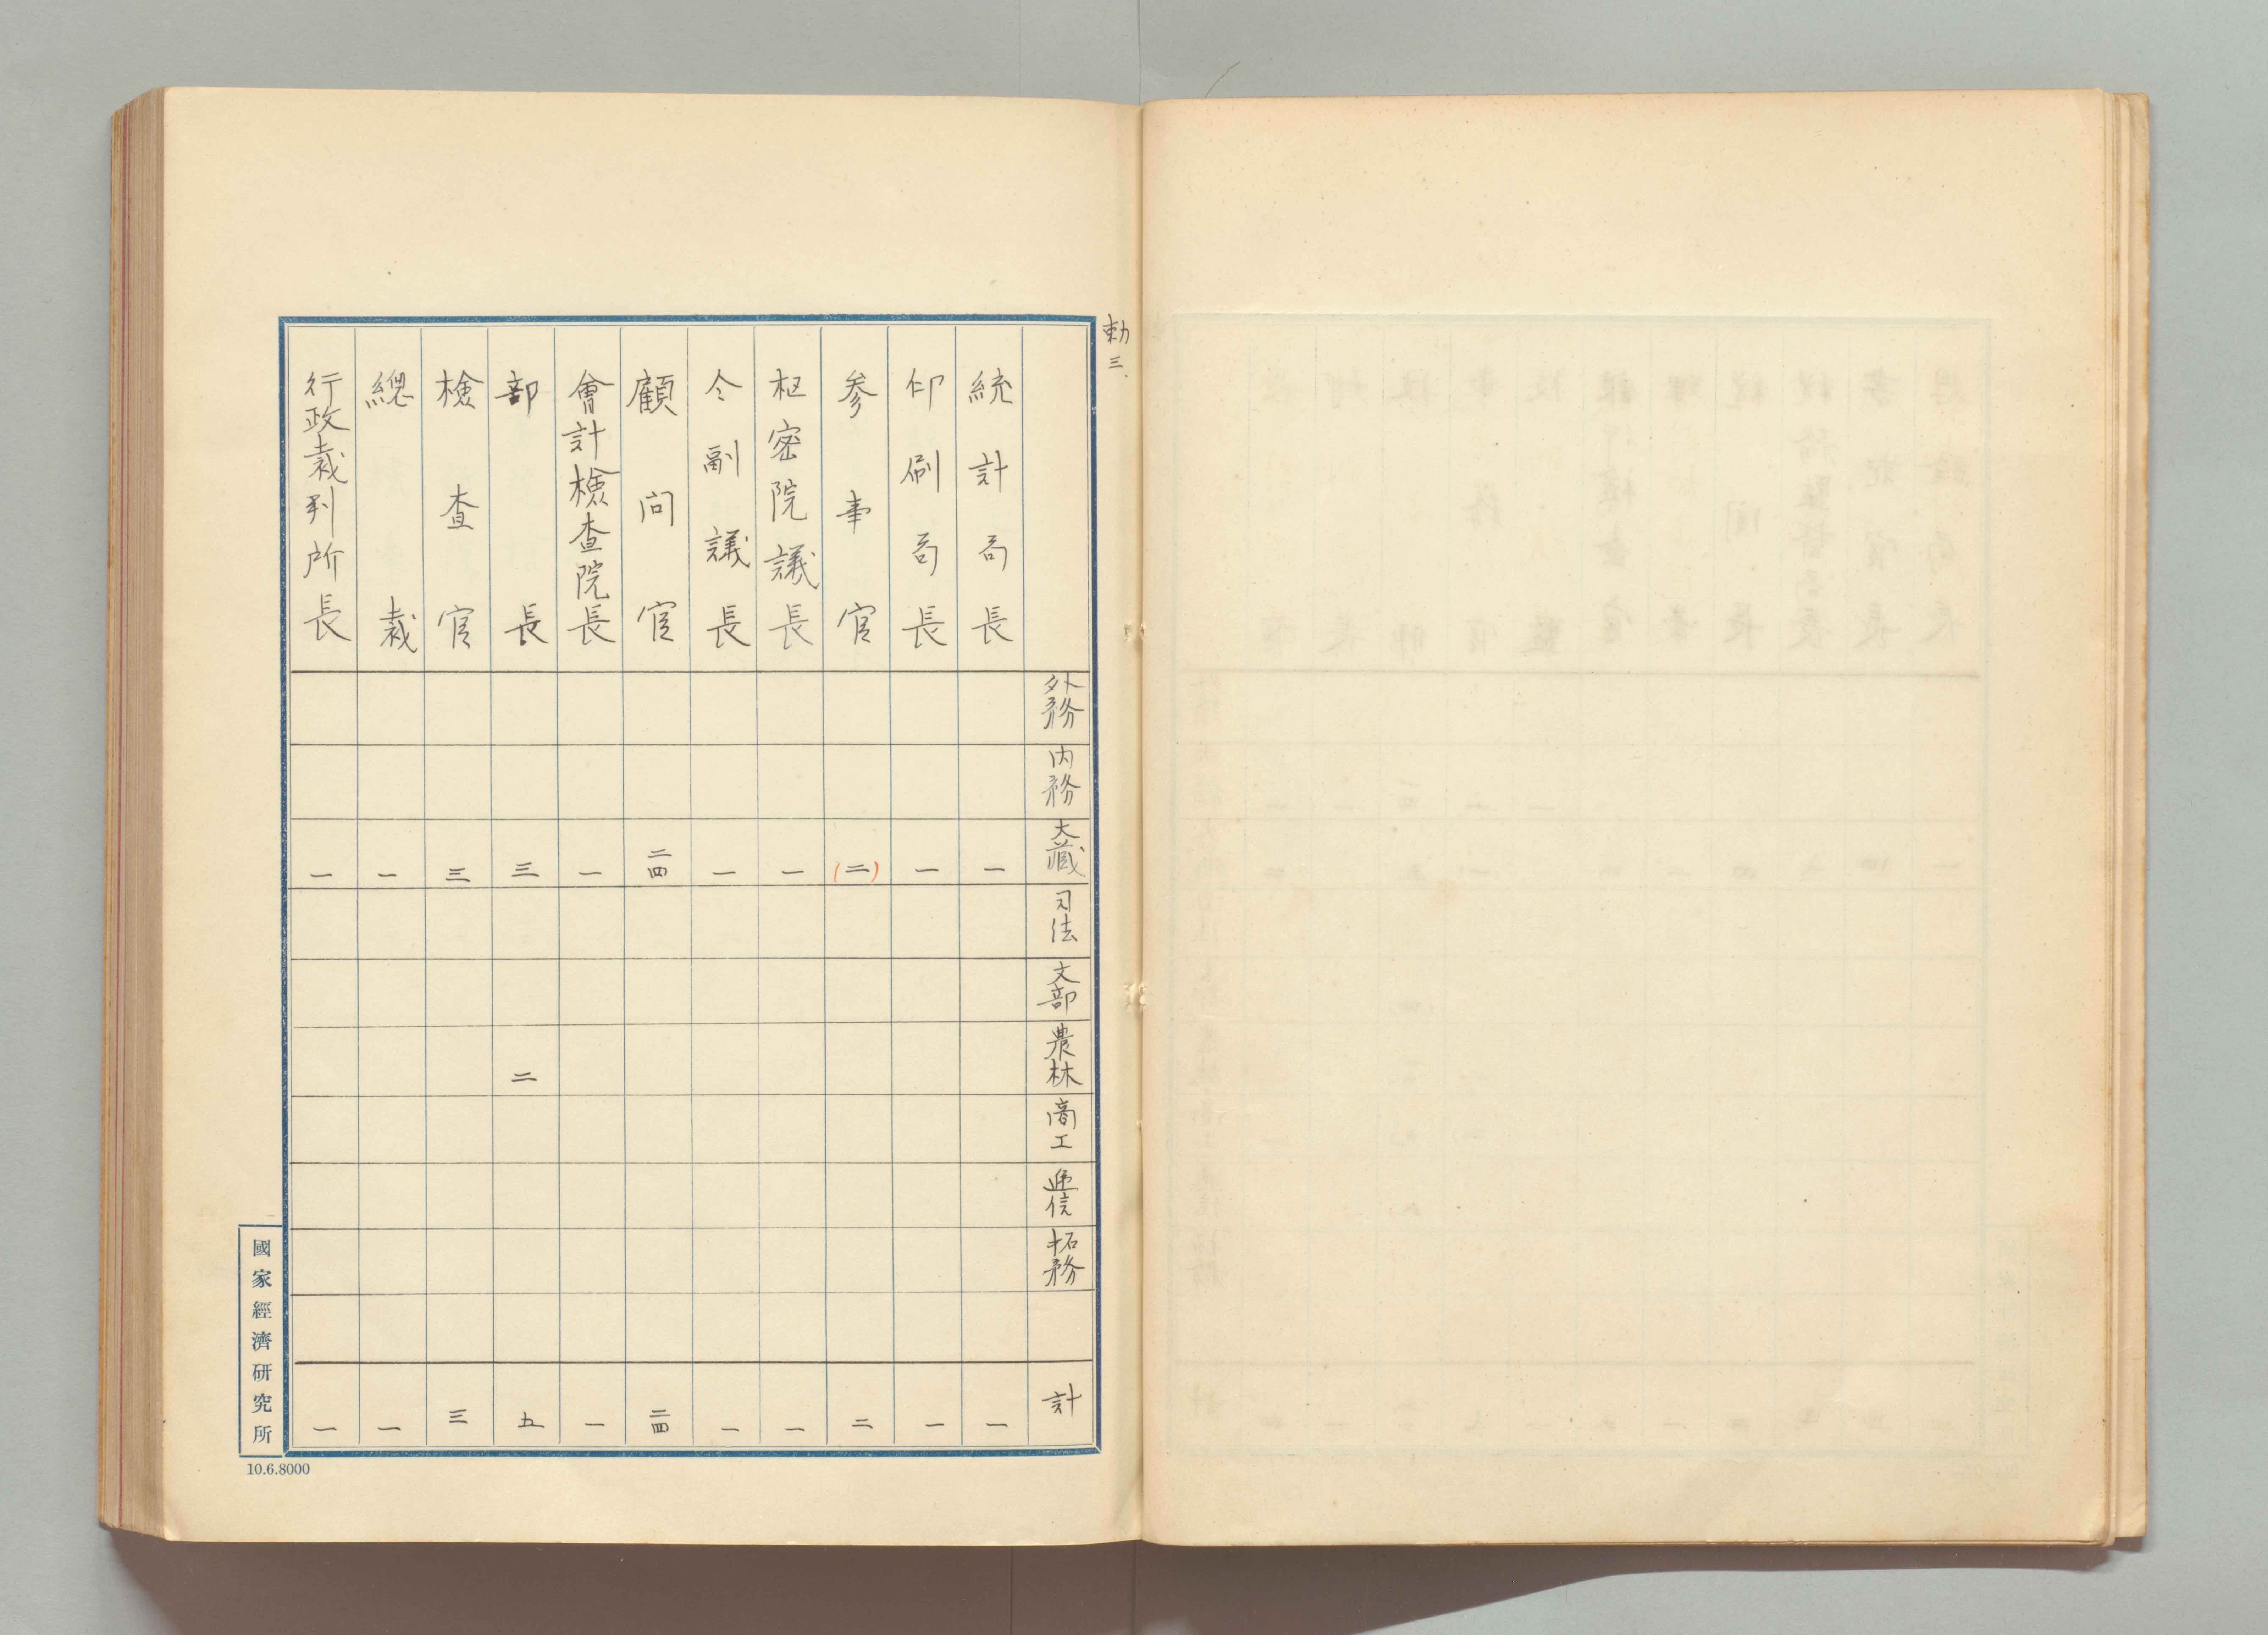 勅三.
外務
内務
大藏
司法
文部
農林
商工
逓信
拓務
計
統計局長 一 一
印刷局長 一 一
参事官 (二) 二
枢密院議長 一 一
仝副議長 一 一
顧問官 二四 二四
會計檢査院長 一 一
部長 三 二 五
檢査官 三 三
總裁 一 一
行政裁判所長 一 一
國家經濟研究所
10.6.8000